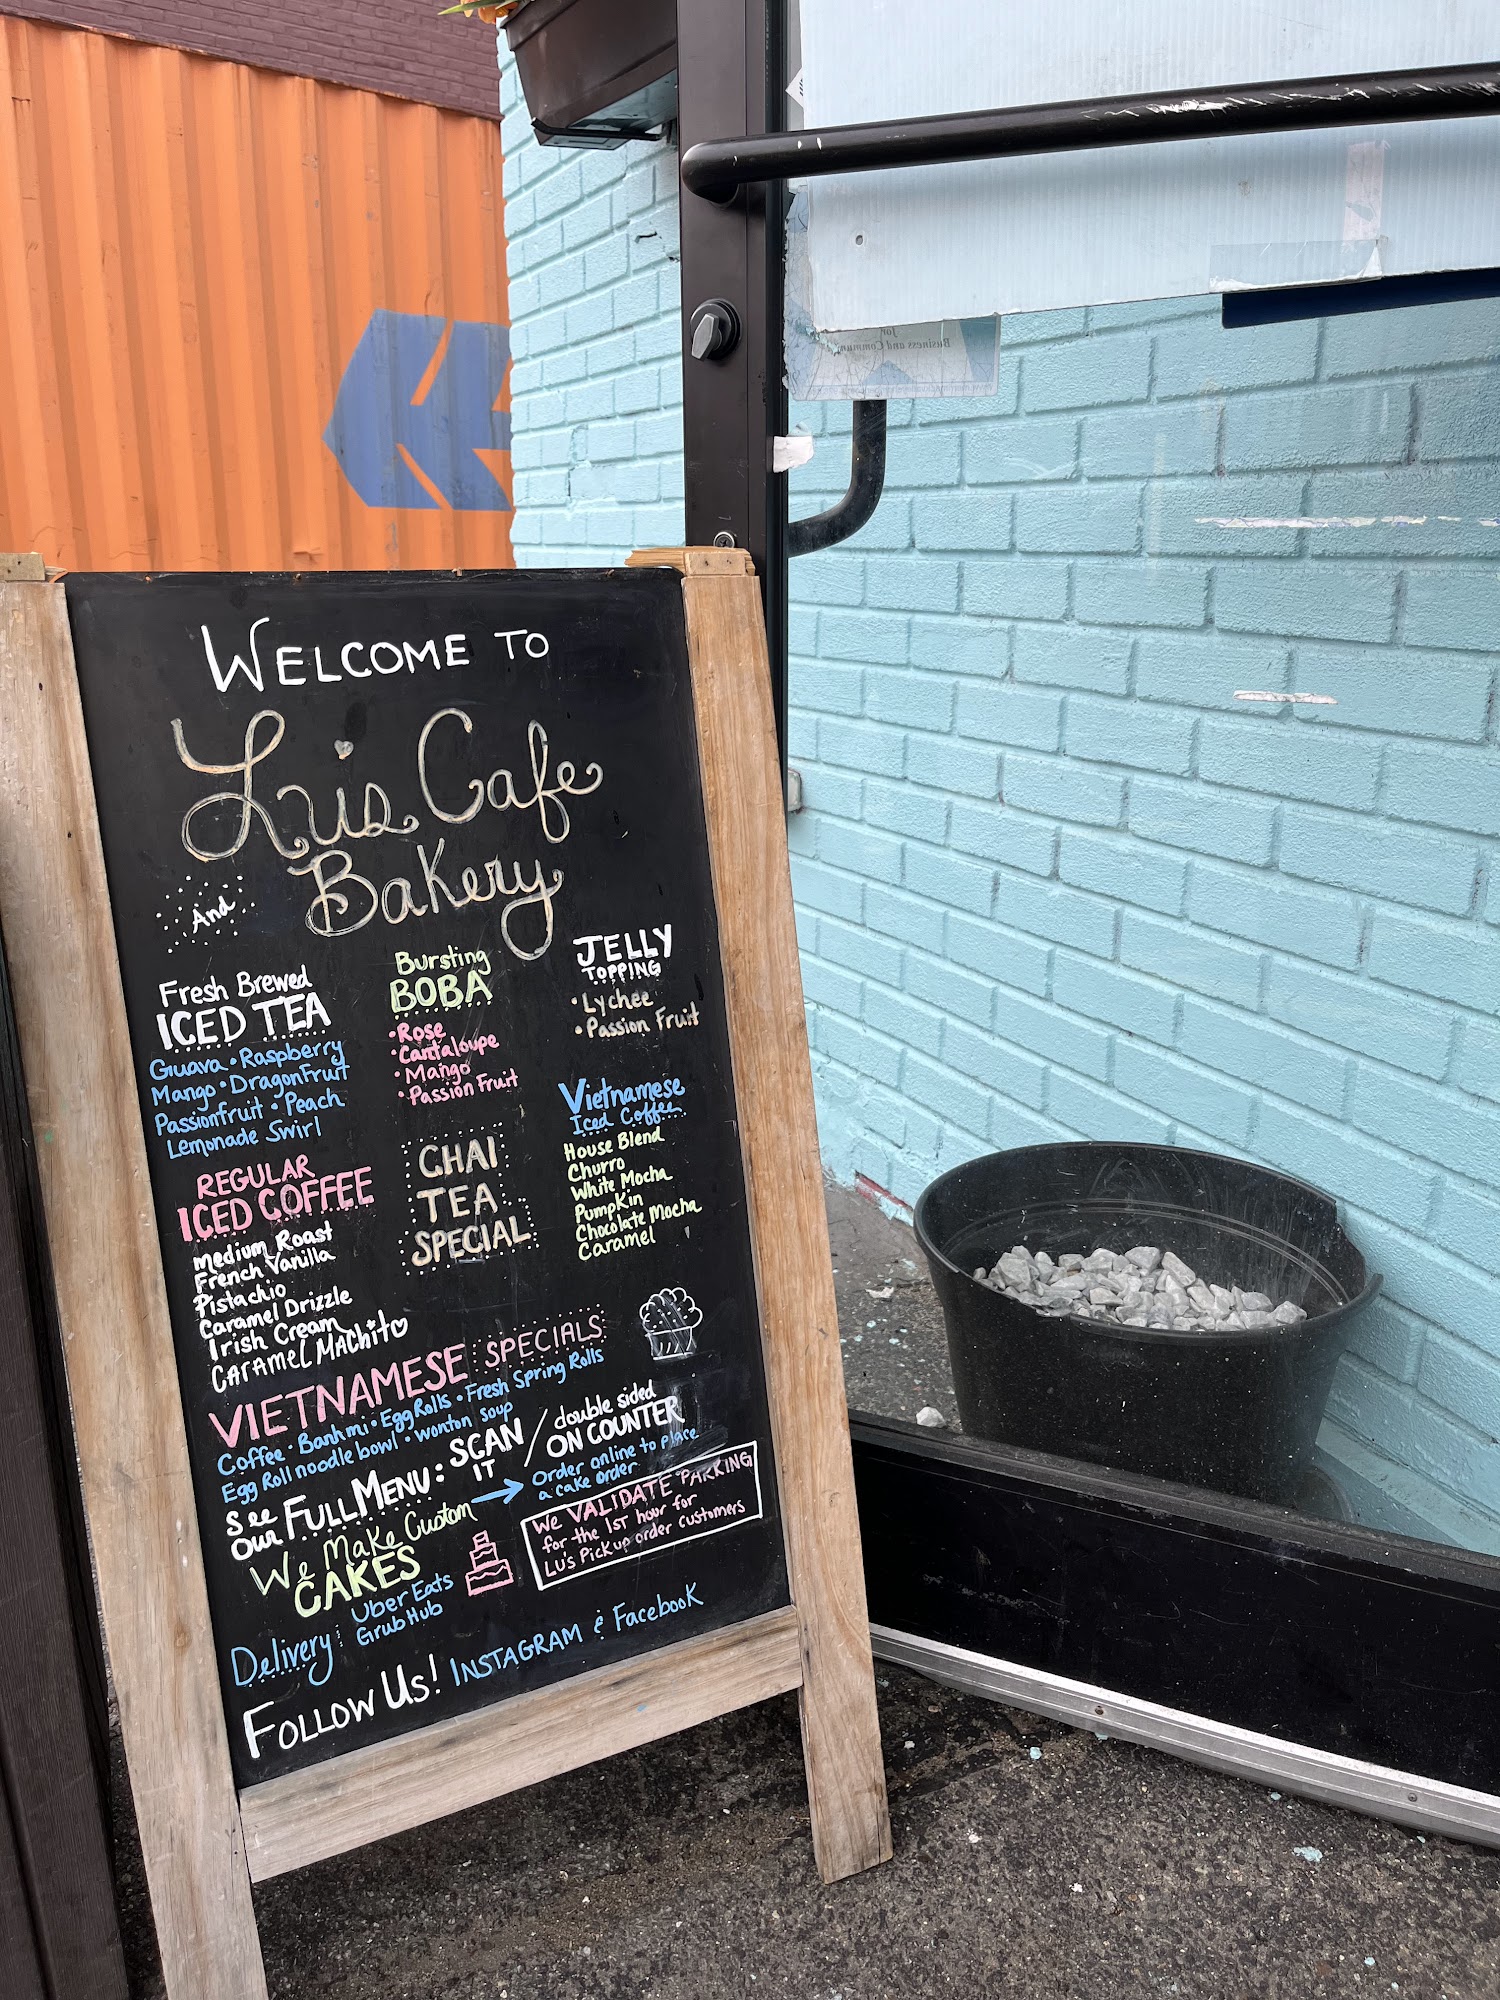 WELCOME TO
Lu's Cafe
And Bakery
Fresh Brewed
ICED TEA
Guava • Raspberry
Mango • DragonFruit
Passionfruit • Peach
Lemonade Swirl
Bursting
BOBA
• Rose
• Cantaloupe
• Mango
• Passion Fruit
JELLY
TOPPING
• Lychee
• Passion Fruit
REGULAR
ICED COFFEE
Medium Roast
French Vanilla
Pistachio
Caramel Drizzle
Irish Cream
CARAMEL MACHito
CHAI
TEA
SPECIAL
Vietnamese
Iced Coffee
House Blend
Churro
White Mocha
Pumpkin
Chocolate Mocha
Caramel
VIETNAMESE SPECIALS
Coffee • Banh mi • Egg Rolls • Fresh Spring Rolls
Egg Roll noodle bowl • Wonton Soup
See
our FULL MENU: SCAN
IT / double sided
ON COUNTER
We Make Custom
CAKES
→ Order online to place
a cake order
We VALIDATE PARKING
for the 1ST hour for
LU's Pickup order customers
Delivery: Uber Eats
GrubHub
FOLLOW US! INSTAGRAM & Facebook
for
Business and